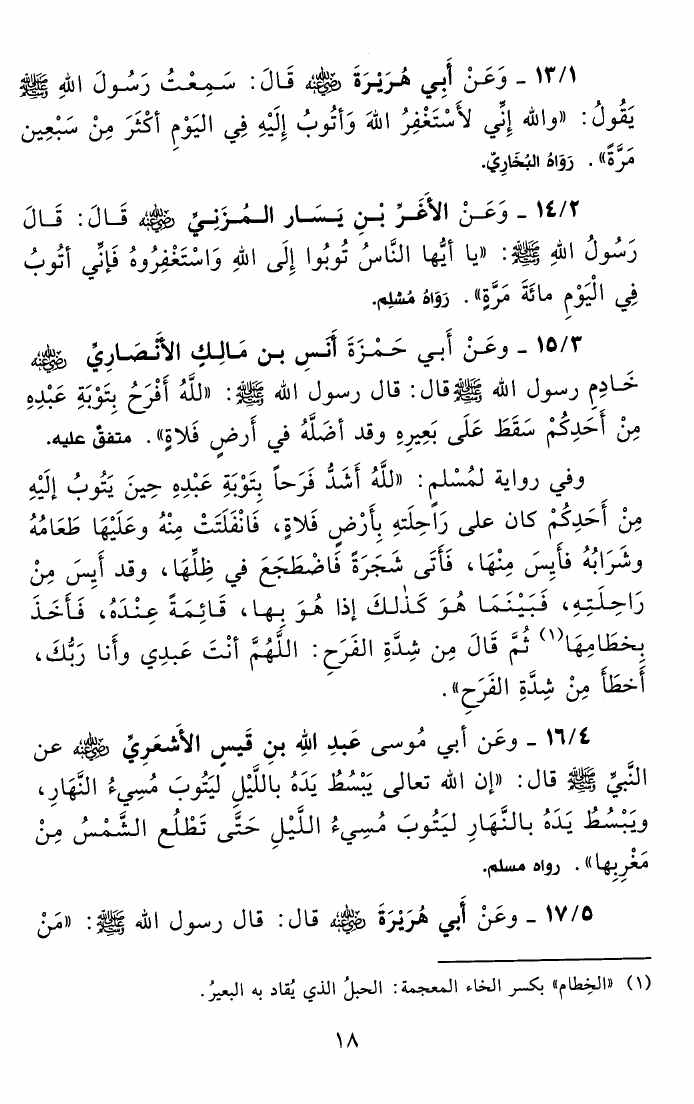 ١٣/١ ـ وَعَنْ أَبِي هُرَيْرَةَ رضي الله عنه قَالَ: سَمِعْتُ رَسُولَ اللهِ ﷺ
يَقُولُ: «والله إِنِّي لأَسْتَغْفِرُ اللهَ وَأَتُوبُ إِلَيْهِ فِي اليَوْمِ أكْثَرَ مِنْ سَبْعِين
مَرَّةً». رَوَاهُ البُخَارِيّ.
١٤/٢ ـ وَعَـنْ الأَغَـرِّ بْـنِ يَـسَـار الـمُـزَنِـيِّ رضي الله عنه قَـالَ: قَـالَ
رَسُولُ اللهِ ﷺ: «يا أَيُّها النَّاسُ تُوبُوا إِلَى اللهِ وَاسْتَغْفِرُوهُ فَإِنِّي أتُوبُ
فِي الْيَوْمِ مائَةَ مَرَّةٍ». رَوَاهُ مُسْلِم.
١٥/٣ ـ وعَنْ أَبـي حَـمْـزَةَ أَنَسِ بـن مَـالِـكٍ الأَنْـصَـارِيِّ رضي الله عنه
خَـادِمِ رسول الله ﷺ قال: قال رسول الله ﷺ: «للَّهُ أَفْرَحُ بِتَوْبَةِ عَبْدِهِ
مِنْ أَحَدِكُمْ سَقَطَ عَلَى بَعِيرِهِ وقد أضَلَّهُ في أَرضٍ فَلاةٍ». متفقٌ عليه.
وفي رواية لمُسْلمٍ: «للَّهُ أَشَدُّ فَرَحاً بِتَوْبَةِ عَبْدِهِ حِينَ يَتُوبُ إِلَيْهِ
مِنْ أَحَدِكُمْ كان على رَاحِلَتِهِ بِأَرْضٍ فَلاةٍ، فَانْفَلَتَتْ مِنْهُ وعَلَيْهَا طَعَامُهُ
وشَرَابُهُ فأَيِسَ مِنْهَا، فَأَتَى شَجَرَةً فَاضْطَجَعَ في ظِلِّهَا، وقد أَيِسَ مِنْ
رَاحِلَـتِهِ، فَـبَيْنَمَا هُـوَ كَـذٰلـكَ إذا هُـوَ بِـها، قَـائِـمَـةً عِنْدَهُ، فَـأَخَـذَ
بِخطَامِهَا(١) ثُمَّ قَالَ مِن شِدَّةِ الفَرَحِ: اللَّهُمَّ أنْتَ عَبدِي وأَنا رَبُّكَ،
أَخطَأَ مِنْ شِدَّةِ الفَرَحِ».
١٦/٤ ـ وعَن أَبي مُوسى عَبدِ اللهِ بنِ قَيسٍ الأَشعَرِيِّ رضي الله عنه عن
النَّبيِّ ﷺ قال: «إن الله تعالى يَبْسُطُ يَدَهُ باللَّيْلِ ليَتُوبَ مُسِيءُ النَّهَارِ،
ويَبْسُطُ يَدَهُ بـالنَّهَارِ ليَتُوبَ مُسِيءُ اللَّيْلِ حَتَّى تَطْلُع الشَّمْسُ مِنْ
مَغْرِبِها». رواه مسلم.
١٧/٥ ـ وعَنْ أَبي هُرَيْرَةَ رضي الله عنه قال: قال رسول الله ﷺ: «مَنْ
(١) «الخِطام» بكسر الخاء المعجمة: الحبلُ الذي يُقاد به البعيرُ.
١٨